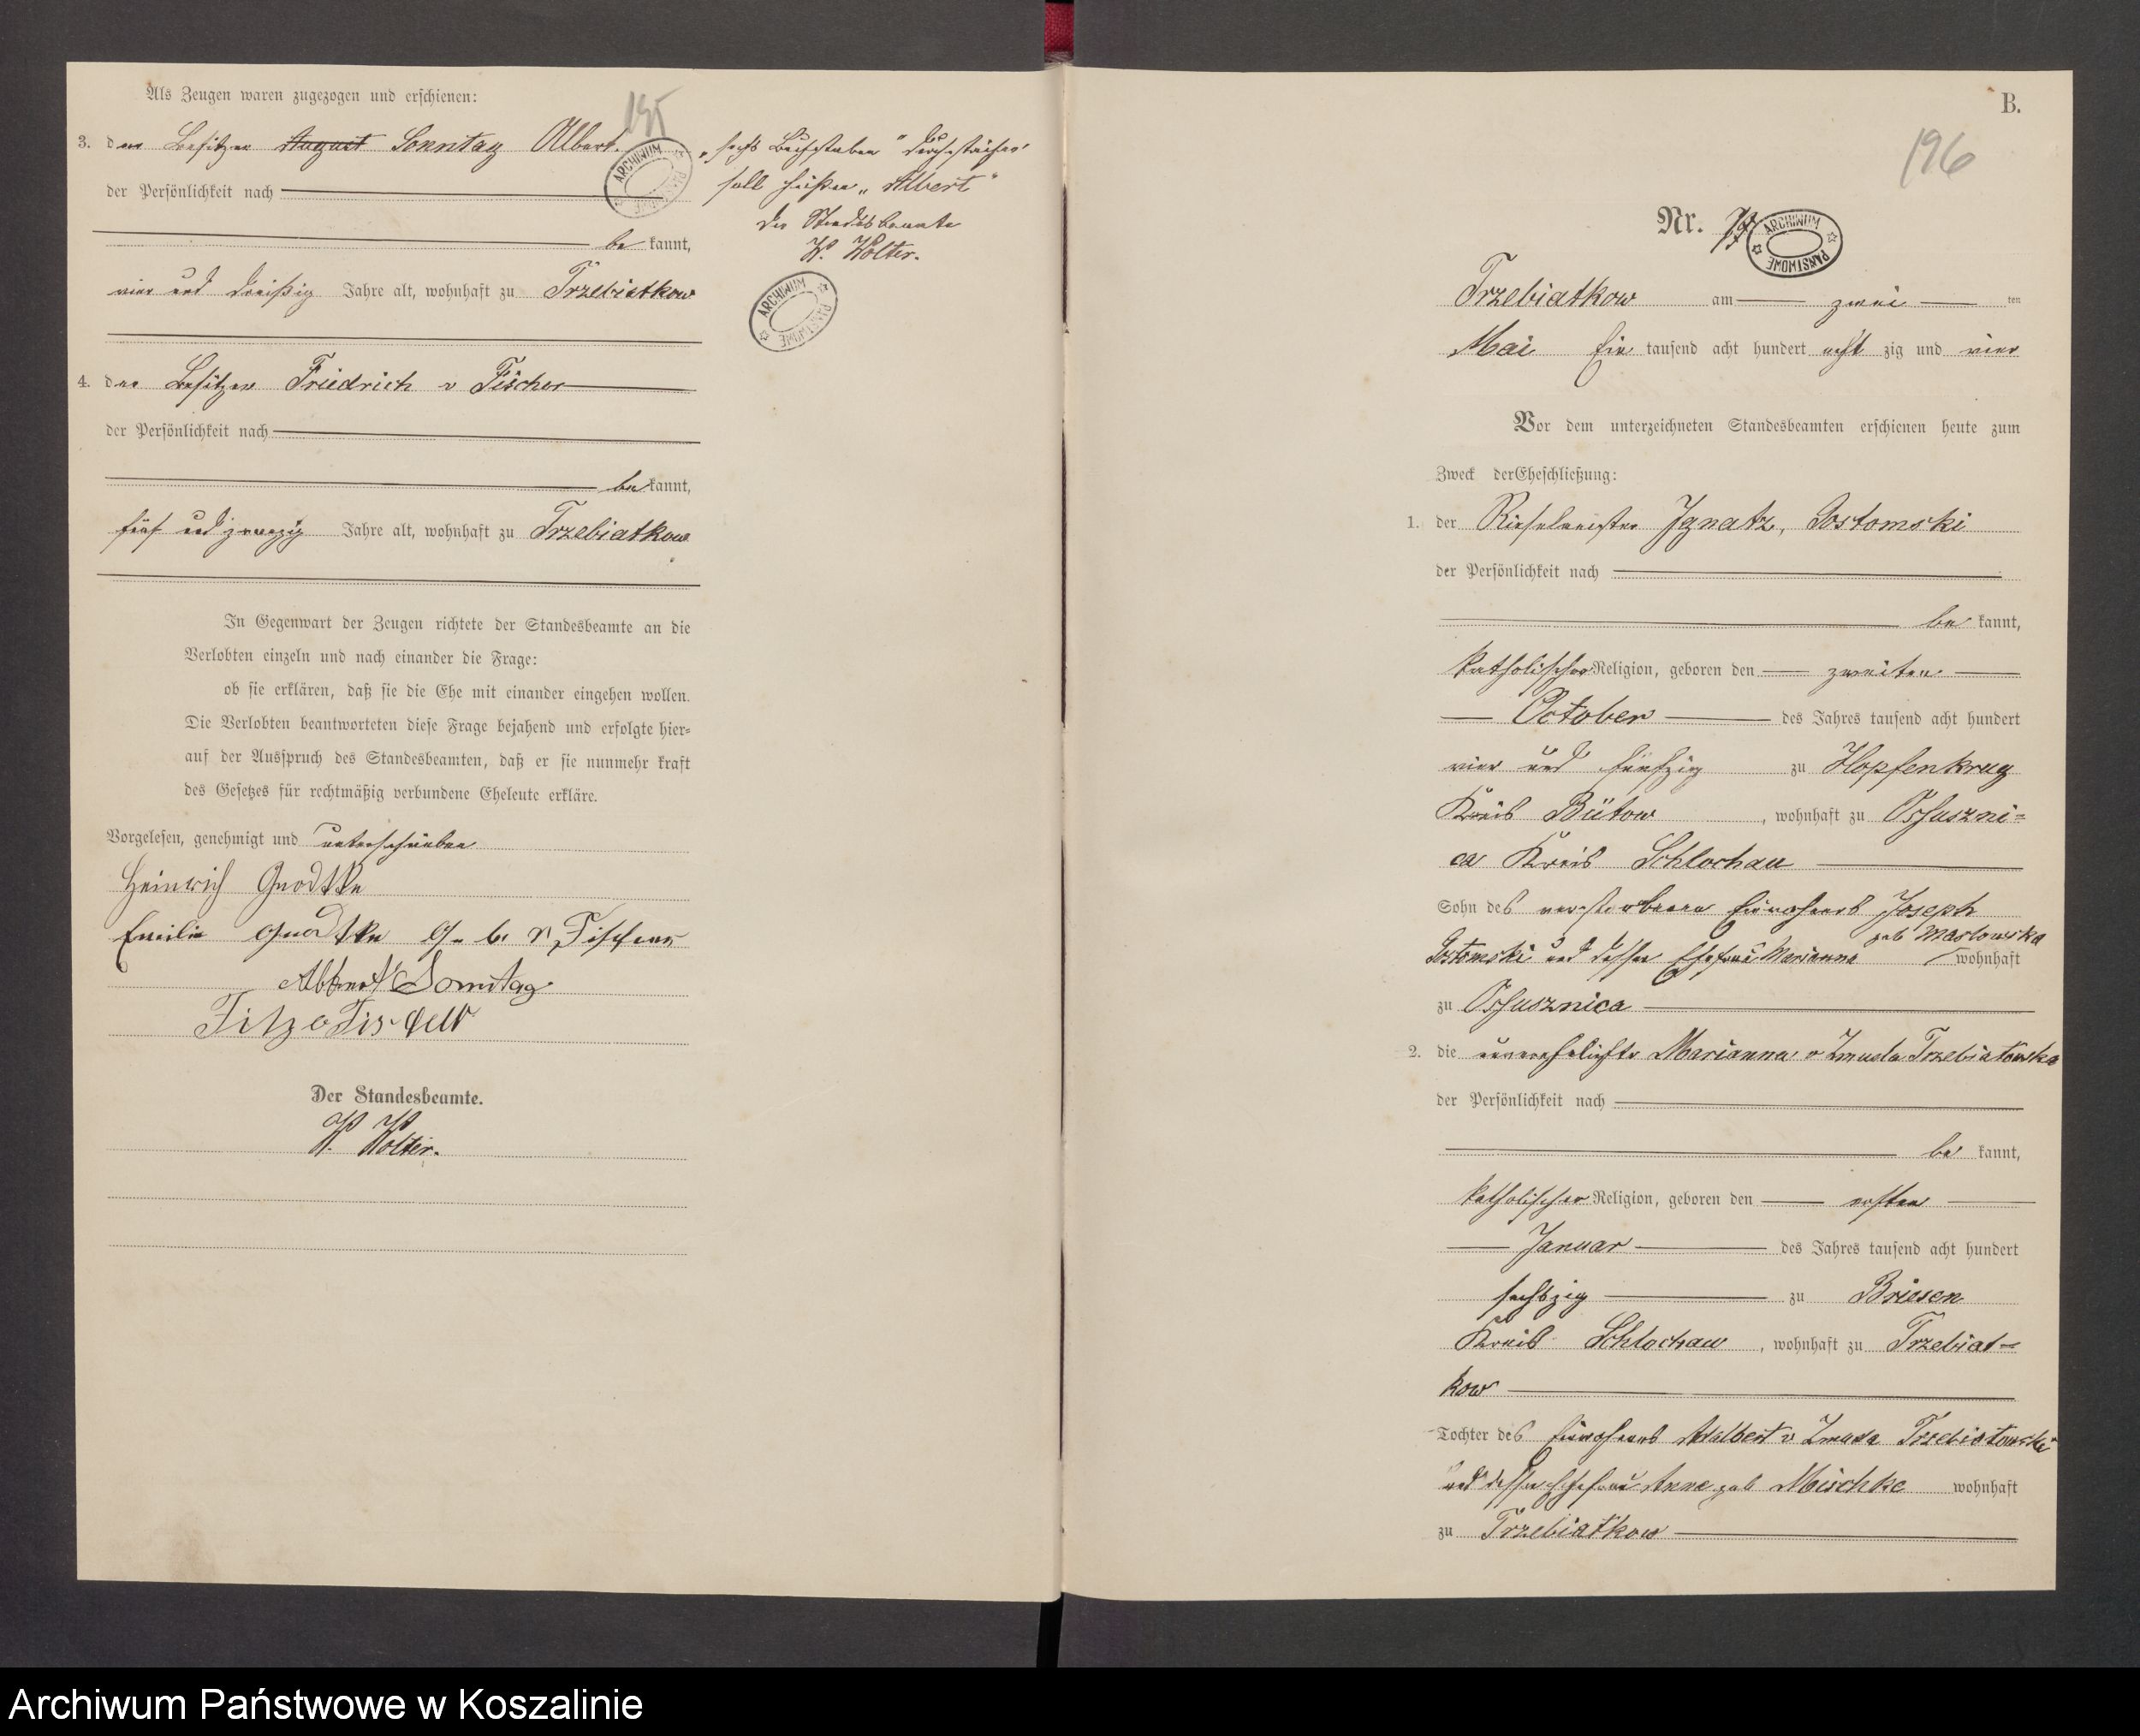 Als Zeugen waren zugezogen und erschienen:
195
3. der Besitzer August Sonntag Albert.
der Persönlichkeit nach
be kannt,
vier und dreißig Jahre alt, wohnhaft zu Trzebiatkow
4. der Besitzer Friedrich v Fischer
der Persönlichkeit nach
be kannt,
fünf und zwanzig Jahre alt, wohnhaft zu Trzebiatkow
In Gegenwart der Zeugen richtete der Standesbeamte an die
Verlobten einzeln und nach einander die Frage:
ob sie erklären, daß sie die Ehe mit einander eingehen wollen.
Die Verlobten beantworteten diese Frage bejahend und erfolgte hier=
auf der Ausspruch des Standesbeamten, daß er sie nunmehr kraft
des Gesetzes für rechtmäßig verbundene Eheleute erkläre.
Vorgelesen, genehmigt und unterschrieben
Heinrich Gnodtke
Emilie Gnodtke geb. v Fischer
Albert Sonntag
Der Standesbeamte.
W. Wolter.
„sechs Buchstaben" durchstrichen
soll heißen „Albert"
Der Standesbeamte
W. Wolter.
ARCHIWUM PAŃSTWOWE
ARCHIWUM PAŃSTWOWE
B.
196
Nr.
ARCHIWUM PAŃSTWOWE
Trzebiatkow am zwei ten
Mai Ein tausend acht hundert acht zig und vier
Vor dem unterzeichneten Standesbeamten erschienen heute zum
Zweck der Eheschließung:
1. der Rieselmeister Ignatz, Gostomski
der Persönlichkeit nach
be kannt,
katholischer Religion, geboren den zweiten
October des Jahres tausend acht hundert
vier und fünfzig zu Hopfenkrug
Kreis Bütow, wohnhaft zu Ossuszni=
ca Kreis Schlochau
Sohn des verstorbenen Einwohners Joseph
Gostomski und dessen Ehefrau Marianna geb Maslowska wohnhaft
zu Ossusznica
2. die unverehelichte Marianna v Zmuda Trzebiatowska
der Persönlichkeit nach
be kannt,
katholischer Religion, geboren den ersten
Januar des Jahres tausend acht hundert
sechszig zu Briesen
Kreis Schlochau, wohnhaft zu Trzebiat=
kow
Tochter des Einwohners Adalbert v Zmuda Trzebiatowski
und dessen Ehefrau Anna geb Mischke wohnhaft
zu Trzebiatkow
Archiwum Państwowe w Koszalinie